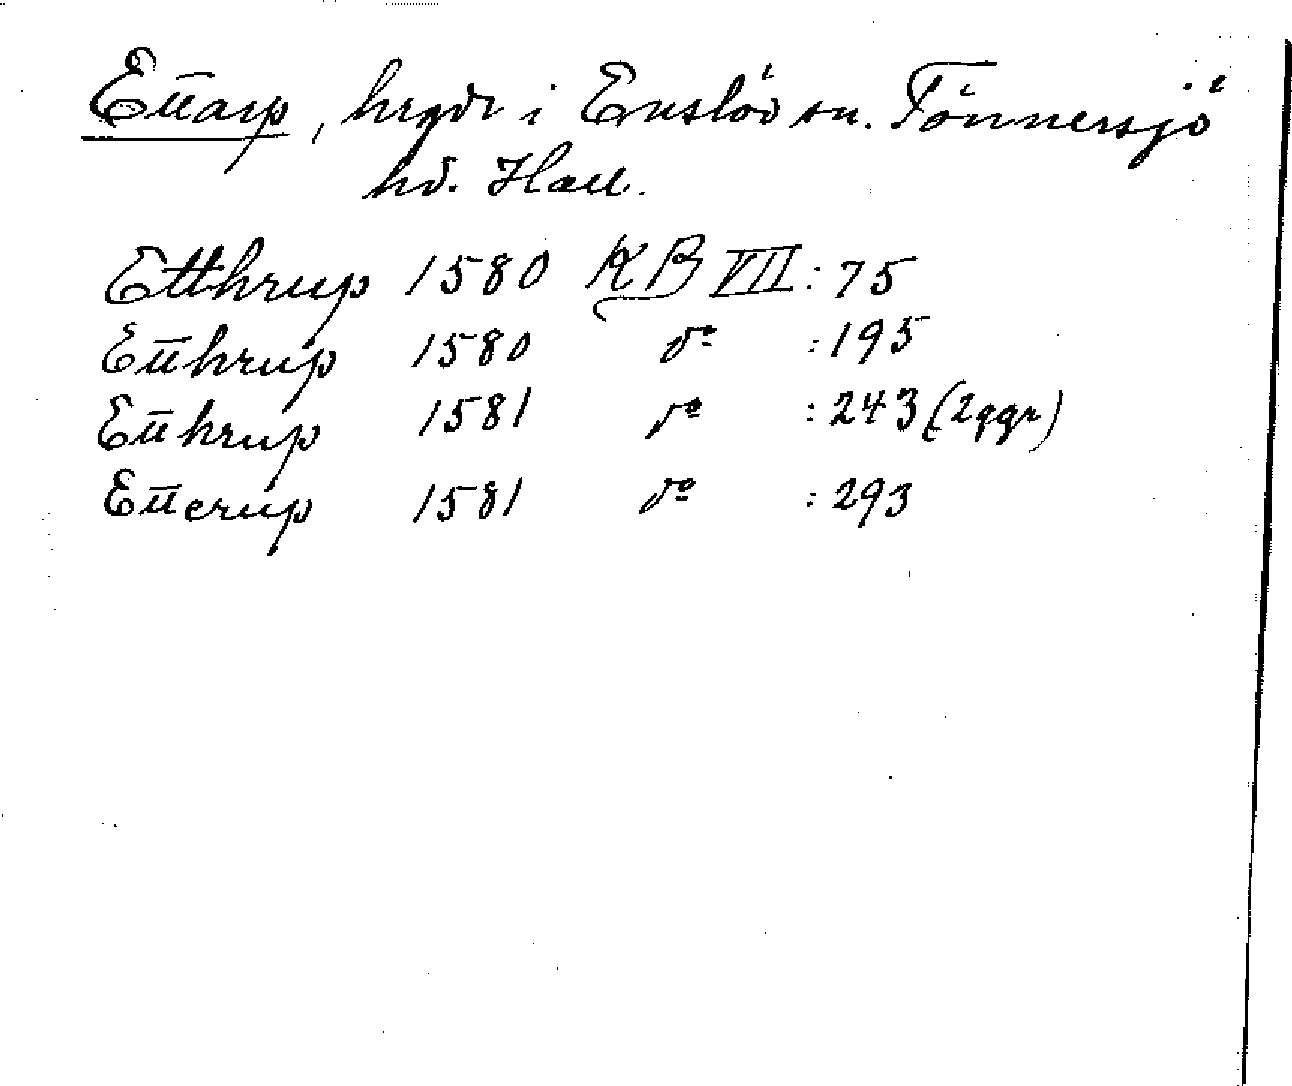 Ettarp, hrgdr i Enslöv sn. Tönnersjö
hd. Hall.
Etthrup 1580 KB VII: 75
Etthrup 1580 do : 195
Etthrup 1581 do : 243 (2 ggr)
Etterup 1581 do : 293